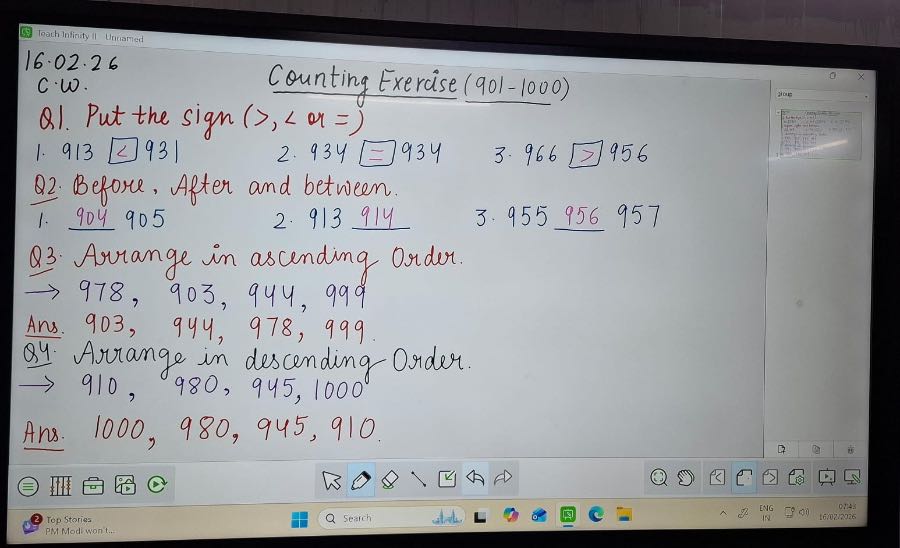 Teach Infinity II Unnamed
16.02.26
C.W.
Counting Exercise (901-1000)
group
Q1. Put the sign (>, < or =)
1. 913 < 931 2. 934 = 934 3. 966 > 956
Q2. Before, After and between.
1. 904 905 2. 913 914 3. 955 956 957
Q3. Arrange in ascending Order.
→ 978, 903, 944, 999
Ans. 903, 944, 978, 999
Q4. Arrange in descending Order.
→ 910, 980, 945, 1000
Ans. 1000, 980, 945, 910.
2 Top Stories
PM Modi won't...
Search
ENG
IN
07:43
16/02/2026